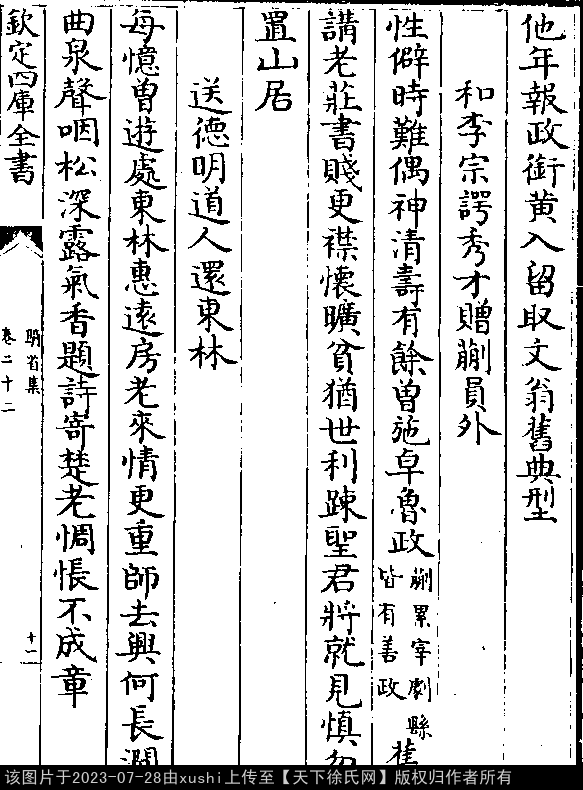 他年報政銜黄入留取文翁舊典型
和李宗諤秀才贈蒯員外
性僻時難偶神清壽有餘曾施卓魯政
蒯累宰劇縣
皆有善政
舊
講老莊書賤更襟懷曠貧猶世利踈聖君將就見慎勿
置山居
送德明道人還東林
每憶曾遊處東林惠逺房老來情更重師去興何長澗
曲泉聲咽松深露氣香題詩寄楚老惆悵不成章
欽定四庫全書
騎省集
卷二十二
十一
该图片于2023-07-28由xushi上传至【天下徐氏网】版权归作者所有